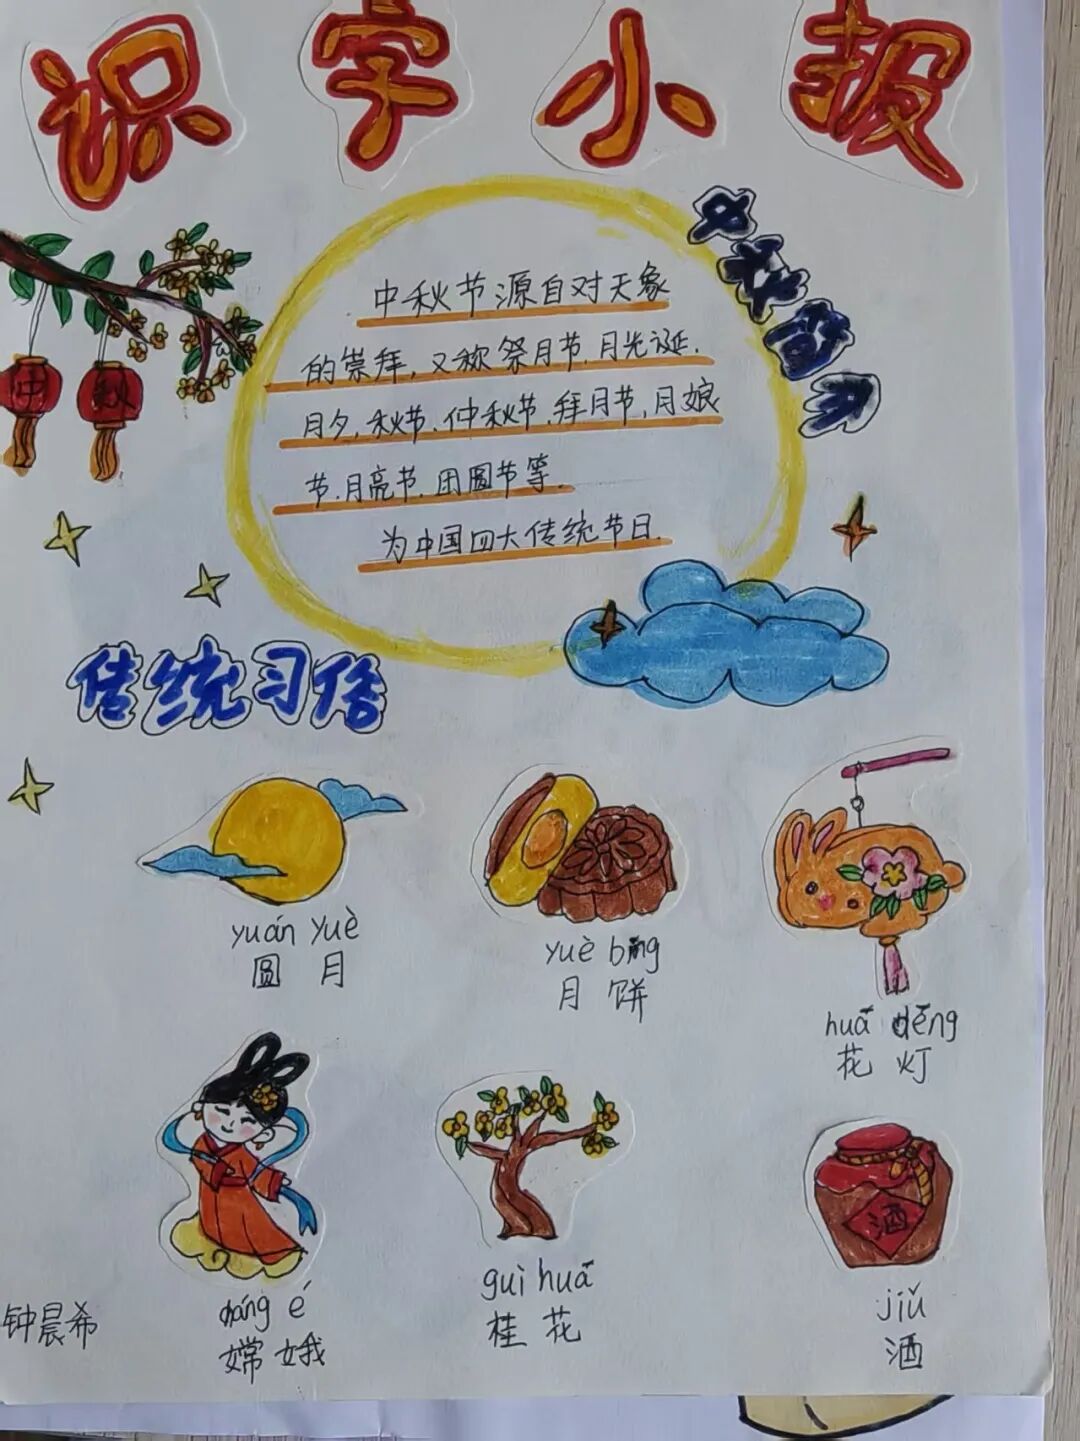 识字小报
中秋的由来
中秋节源自对天象
的崇拜,又称祭月节.月光诞.
月夕,秋节.仲秋节.拜月节,月娘
节.月亮节.团圆节等.
为中国四大传统节日.
仲秋
传统习俗
yuán yuè
圆月
yuè bǐng
月饼
huā dēng
花灯
cháng é
嫦娥
guì huā
桂花
酒
jiǔ
酒
钟晨希